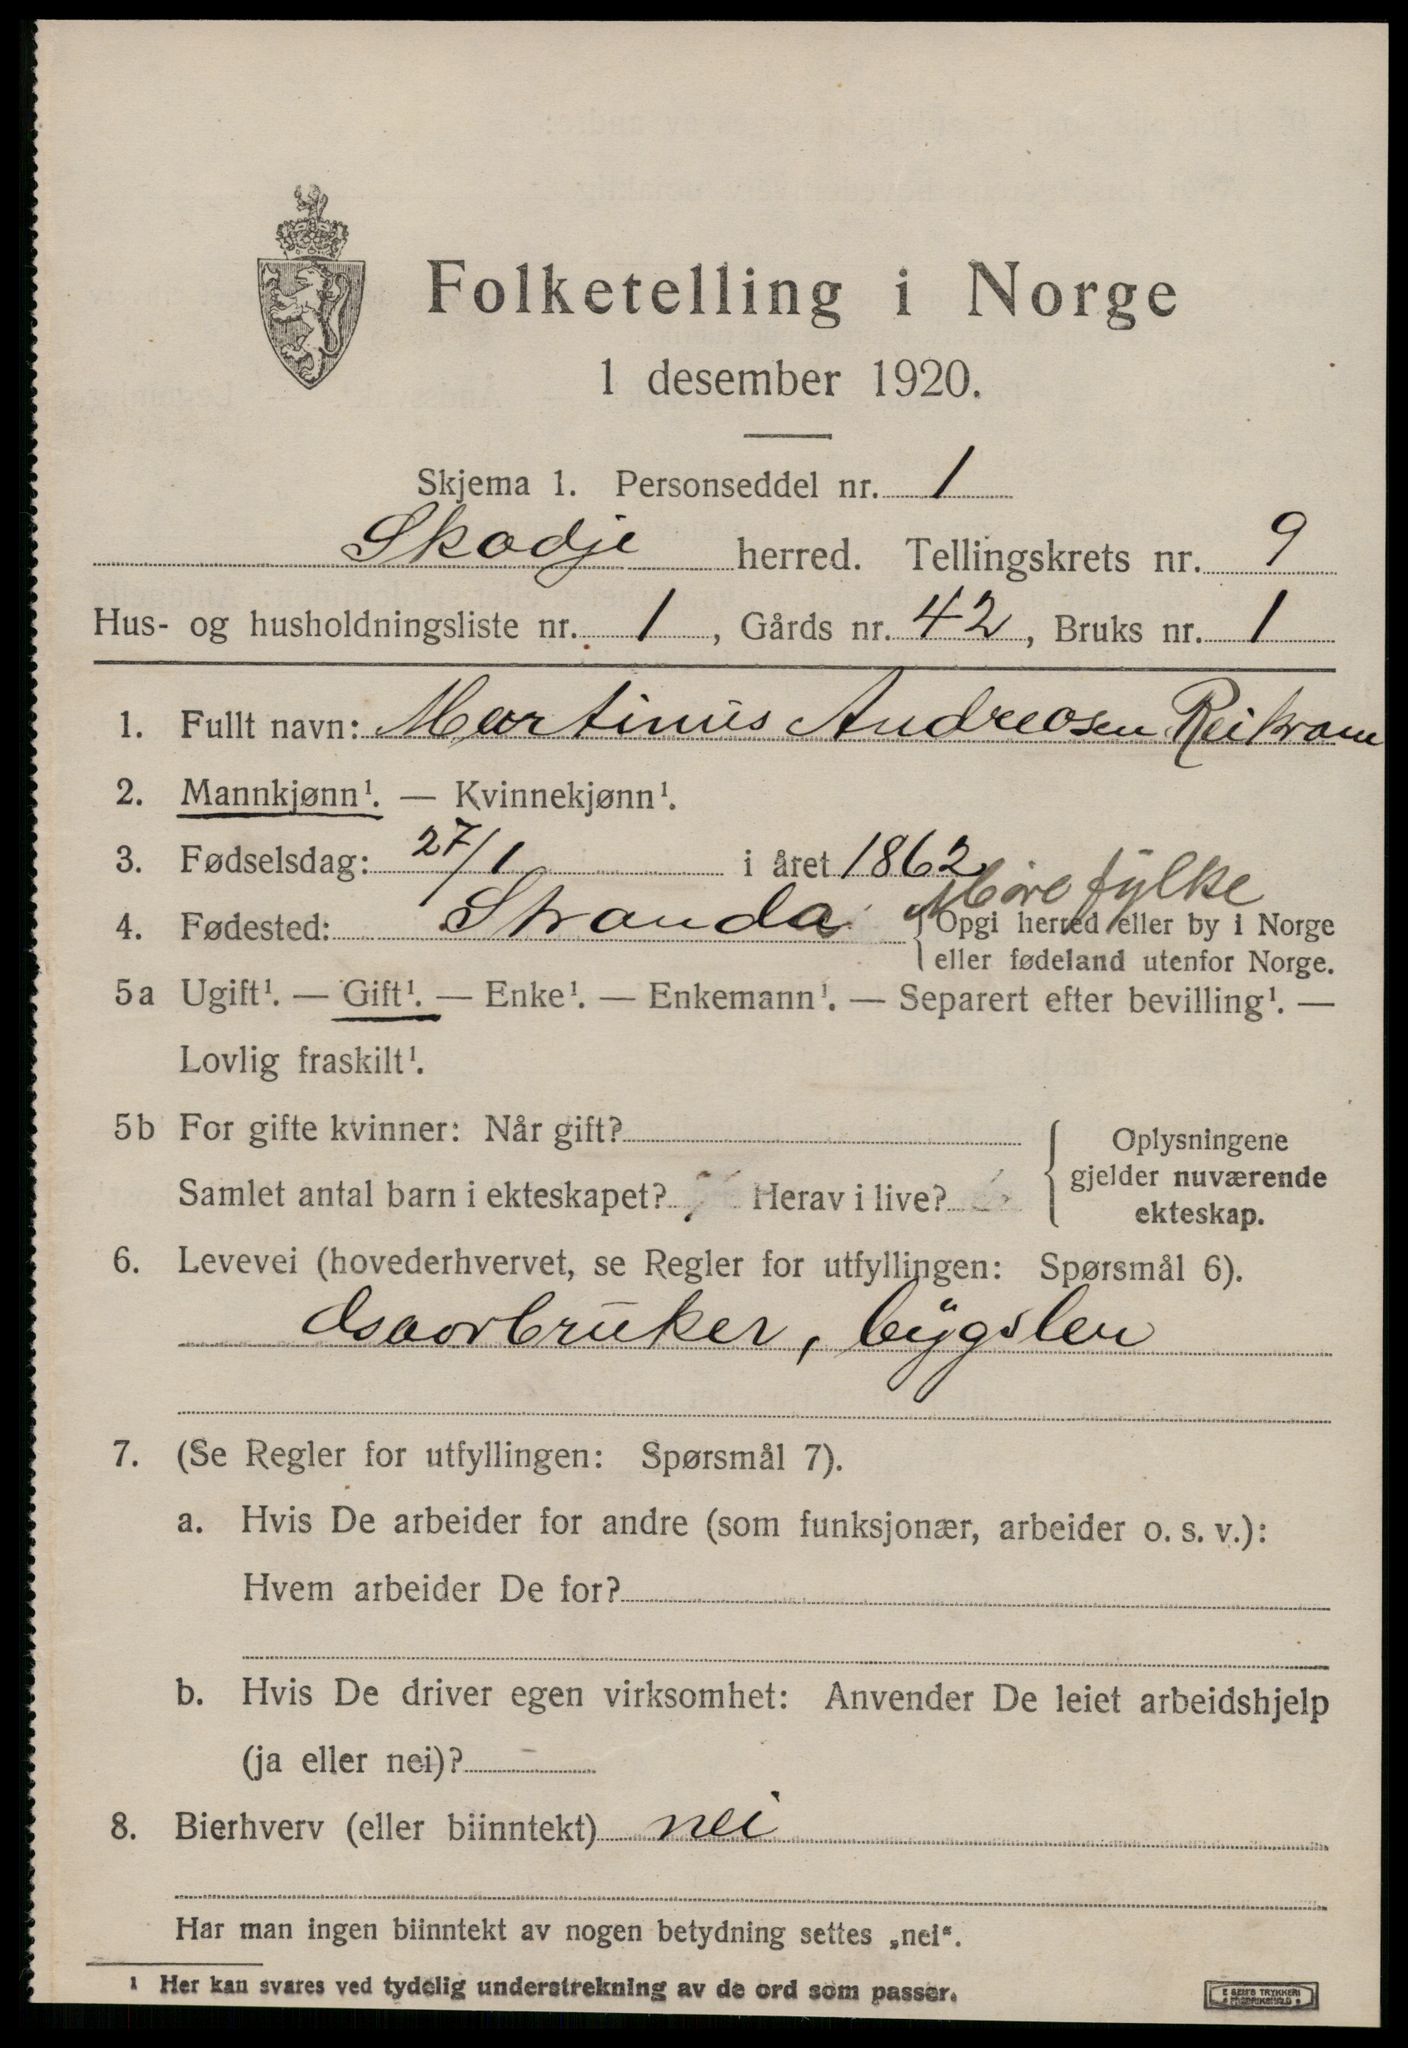 Folketelling i Norge
1 desember 1920.
Skjema 1. Personseddel nr. 1
Skodje herred. Tellingskrets nr. 9
Hus- og husholdningsliste nr. 1, Gårds nr. 42, Bruks nr. 1
1. Fullt navn: Martinus Andreasen Reikvam
2. Mannkjønn¹. — Kvinnekjønn¹.
3. Fødselsdag: 27/1 i året 1862
Møre fylke
4. Fødested: Stranda {Opgi herred eller by i Norge
eller fødeland utenfor Norge.
5a Ugift¹. — Gift¹. — Enke¹. — Enkemann¹. — Separert efter bevilling¹. —
Lovlig fraskilt¹.
5b For gifte kvinner: Når gift?
Samlet antal barn i ekteskapet? Herav i live?
Oplysningene
gjelder nuværende
ekteskap.
6. Levevei (hovederhvervet, se Regler for utfyllingen: Spørsmål 6).
Gaarbruker, bygslen
7. (Se Regler for utfyllingen: Spørsmål 7).
a. Hvis De arbeider for andre (som funksjonær, arbeider o. s. v.):
Hvem arbeider De for?
b. Hvis De driver egen virksomhet: Anvender De leiet arbeidshjelp
(ja eller nei)?
8. Bierhverv (eller biinntekt) nei
Har man ingen biinntekt av nogen betydning settes „nei“.
¹ Her kan svares ved tydelig understrekning av de ord som passer.
E SEM'S TRYKKERI
FREDRIKSHALD